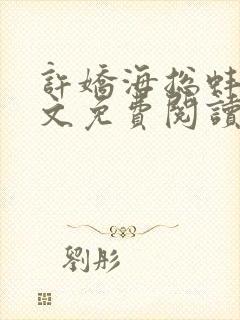 許嬌海總蚌
文免費閱讀
劉彤